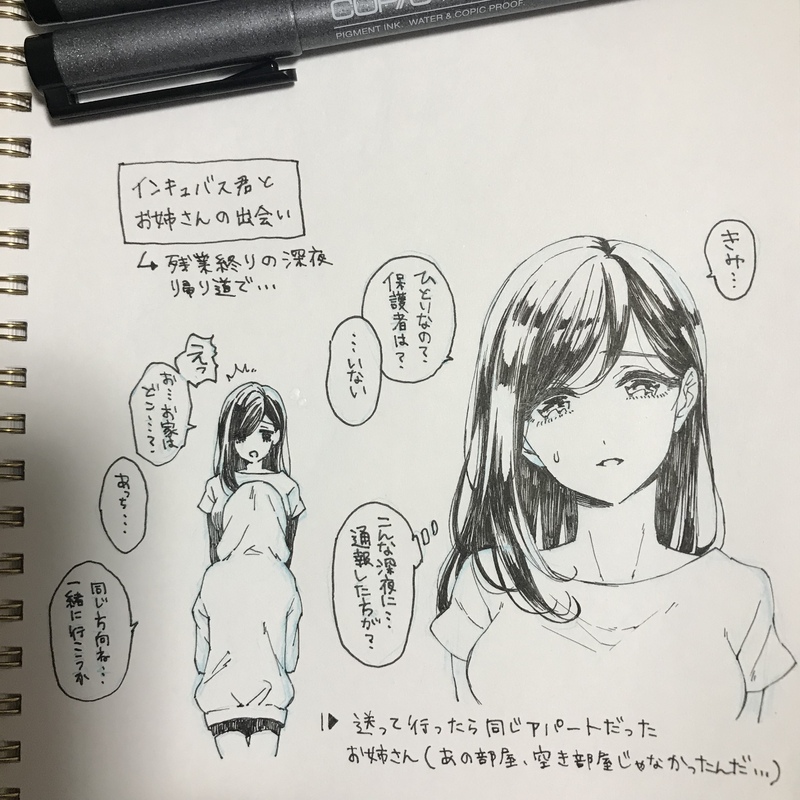 COPIC
PIGMENT INK. WATER & COPIC PROOF.
インキュバス君と
お姉さんの出会い
↳ 残業終りの深夜
帰り道で…
きみ…
ひとりなの?
保護者は?
…いない
こんな深夜に…
通報した方が?
えっ
お…お家は
どこ……?
あっち…
同じ方向ね…
一緒に行こうか
送って行ったら同じアパートだった
お姉さん(あの部屋、空き部屋じゃなかったんだ…)